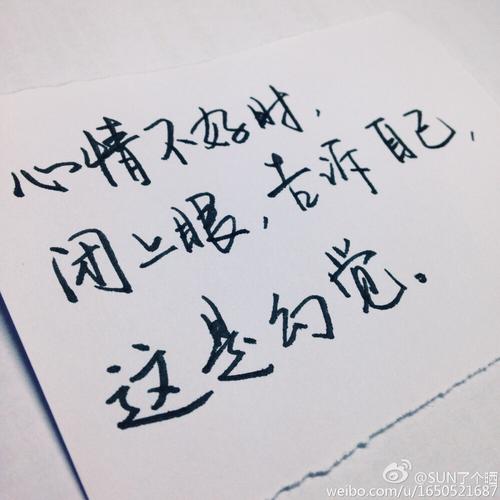 心情不好时,
闭上眼,告诉自己,
这是幻觉.
@SUN了个晒
weibo.com/u/1650521687